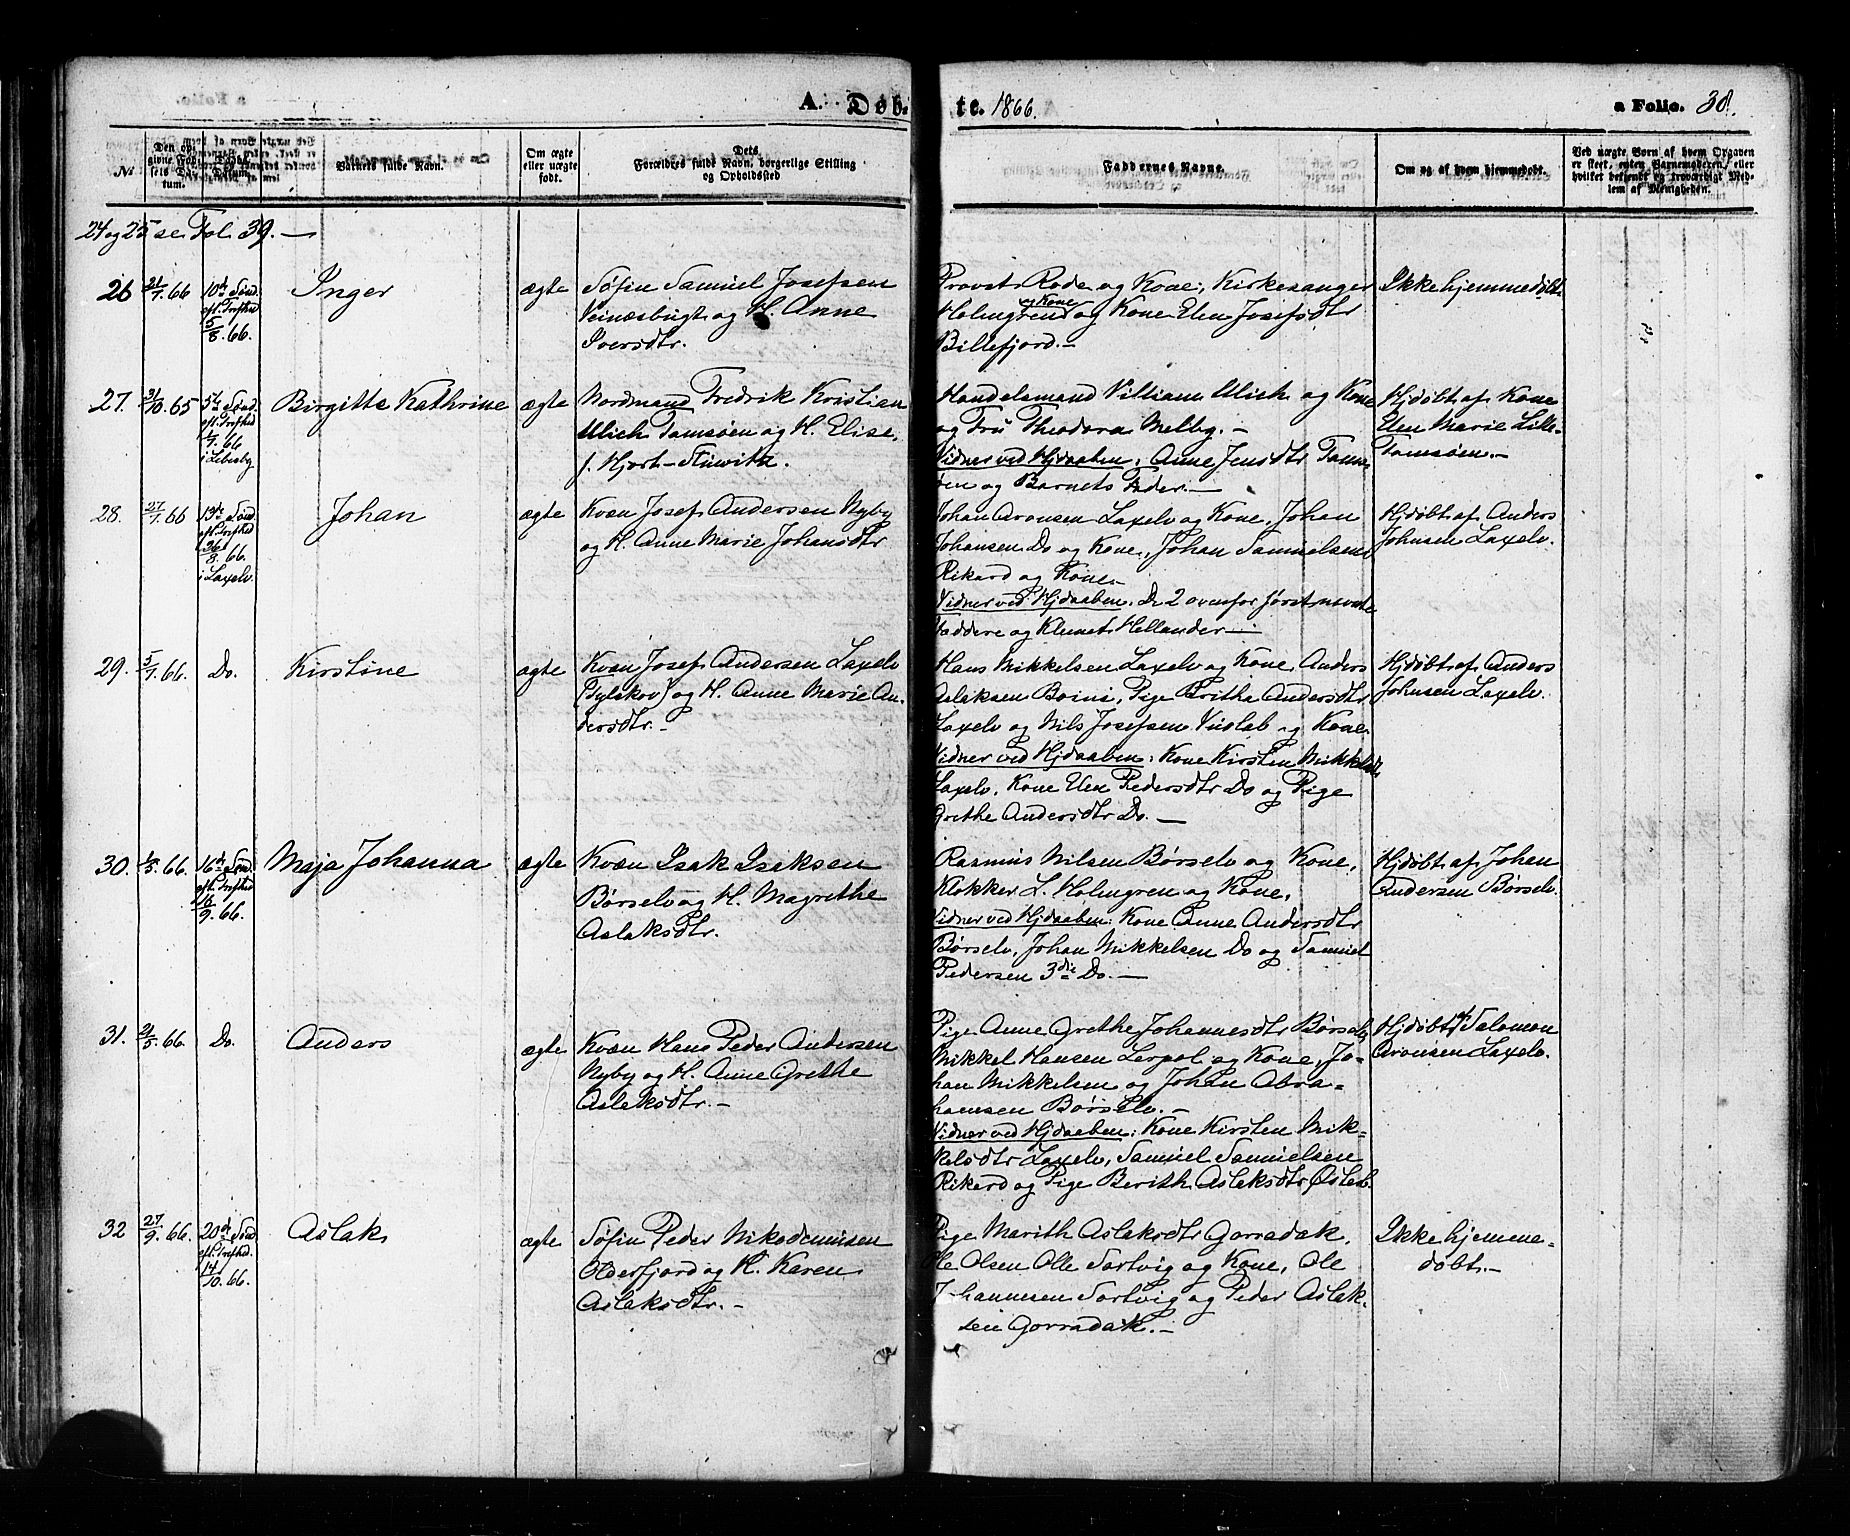 A. Døb-
te. 1866.
a Folio. 38.
No
Barnets fulde Navn.
Om ægte eller uægte født.
Dets Forældres fulde Navn, borgerlige Stilling og Opholdssted
Faddernes Navne.
Om og af hvem hjemmedøbt.
Ved uægte Børn af hvem Opgaven er skeet, enten Barnemoderen eller hvilket bekjendt og troværdigt Medlem af Menigheden.
24 og 25 se Fol. 39. —
26 21/7.66 10de Sønd. eft. Trefhed 5/8.66. Inger ægte
Søfin Samuel Josefsen
Veinæsbugt og H. Anne
Iversdtr.
Provst Rode og Kone, Kirkesanger
Holmgren og Kone og Kone Elen Josefsdtr
Billefjord. —
Ikke hjemmedøbt
27. 31/10.65 5te Sønd. eft. Trefhed 1/7.66 i Lebesby Birgitte Kathrine ægte
Nordmand Fredrik Kristian
Ulich Tamsøen og H. Elise,
f. Hjort-Stuwitz.
Handelsmand Villiam Ulich og Kone
og Fru Theodora Melby. —
Vidner ved Hjdaaben: Anne Jensdtr Tam-
øen og Barnets Fader. —
Hjdøbt af Kone
Elen Marie Lille-
Tamsøen. —
28. 27/7.66 13de Sønd. eft. Trefhed 26/8.66. i Laxelv. Johan ægte
Kvæn Josef Andersen Nyby
og H. Anne Marie Johansdtr
Johan Aronsen Laxelv og Kone, Johan
Johansen Do og Kone, Johan Samuelsen
Rikard og Kone. —
Vidner ved Hjdaaben: De 2 ovenfor først nævnte
Faddere og Klemet Hellander —
Hjdøbt af Anders
Johnsen Laxelv.
29. 5/7.66. Do. Kirstine ægte
Kvæn Josef Andersen Laxelv
(Tylskov) og H. Anne Marie An-
dersdtr. —
Hans Mikkelsen Laxelv og Kone, Anders
Aslaksen Boini, Pige Brithe Andersdtr
Laxelv og Nils Josefsen Vuolab og Kone
Vidner ved Hjdaaben: Kone Kirsten Mikkelsdtr
Laxelv, Kone Elen Pedersdtr Do og Pige
Grethe Andersdtr Do. —
Hjdøbt af Anders
Johnsen Laxelv.
30. 1/5.66. 16de Sønd. eft. Trefhed 16/9.66. Maja Johanna ægte
Kvæn Isak Isaksen
Børselv og H. Magrethe
Aslaksdtr.
Rasmus Nilsen Børselv og Kone,
Klokker L. Holmgren og Kone,
Vidner ved Hjdaaben: Kone Anne Andersdtr
Børselv, Johan Mikkelsen Do og Samuel
Pedersen 3die Do. —
Hjdøbt af Johan
Andersen Børselv.
31. 21/5.66. Do. Anders ægte
Kvæn Hans Peder Andersen
Nyby og H. Anne Grethe
Aslaksdtr. —
Pige Anne Grethe Johannesdtr Børselv,
Mikkel Hansen Lerpol og Kone, Jo-
han Mikkelsen og Johan Abra-
hamsen Børselv. —
Vidner ved Hjdaaben: Kone Kirsten Mik-
kelsdtr Laxelv, Samuel Samuelsen
Rikard og Pige Berith Aslaksdtr
Hjdøbt af Salomon
Aronsen Laxelv.
32 27/9.66. 20de Sønd. eft. Trefhed. 14/10.66. Aslak ægte
Søfin Peder Nikodemusen
Olderfjord og H. Karen
Aslaksdtr. —
Pige Marith Aslaksdtr Gorradak,
Ole Olsen Olle Sortvig og Kone, Ole
Johannesen Sortvig og Peder Aslak-
sen Gorradak. —
Ikke hjemme-
døbt. —